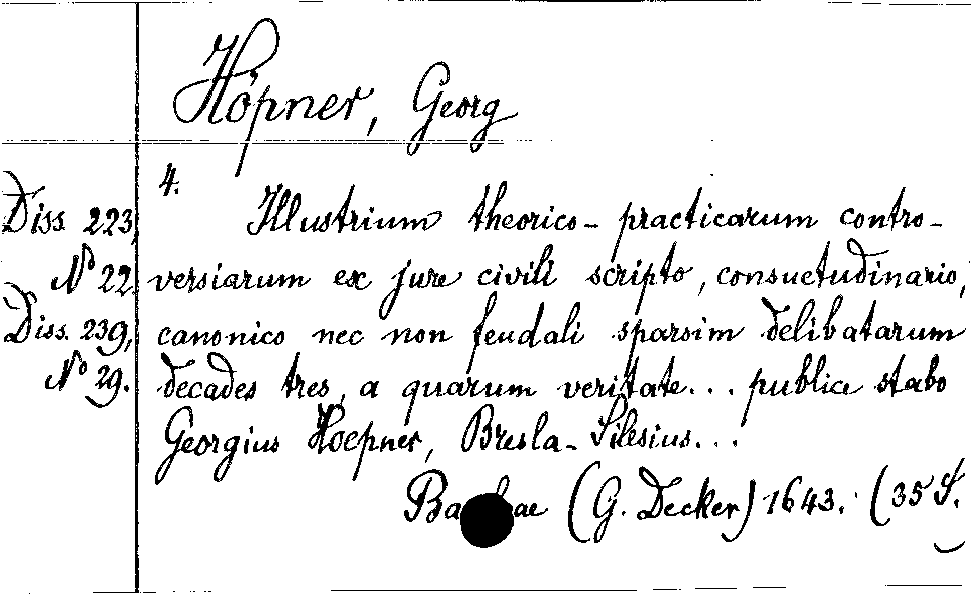 Höpner, Georg
4.
Diss. 223,
Nº 22
Diss. 239,
Nº 29.
Illustrium theorico-practicarum contro-
versiarum ex jure civili scripto, consuetudinario,
canonico nec non feudali sparsim delibatarum
decades tres, a quarum veritate... publice stabo
Georgius Hoepner, Bresla-Silesius...
(G. Decker) 1643. (35 S.